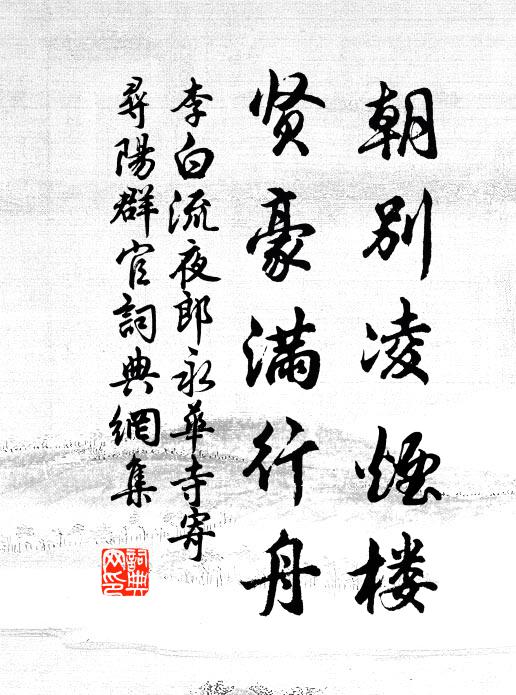 朝别凌煙楼
贤豪满行舟
李白流夜郎永華寺寄
尋陽群官詞典網集
詞典网印